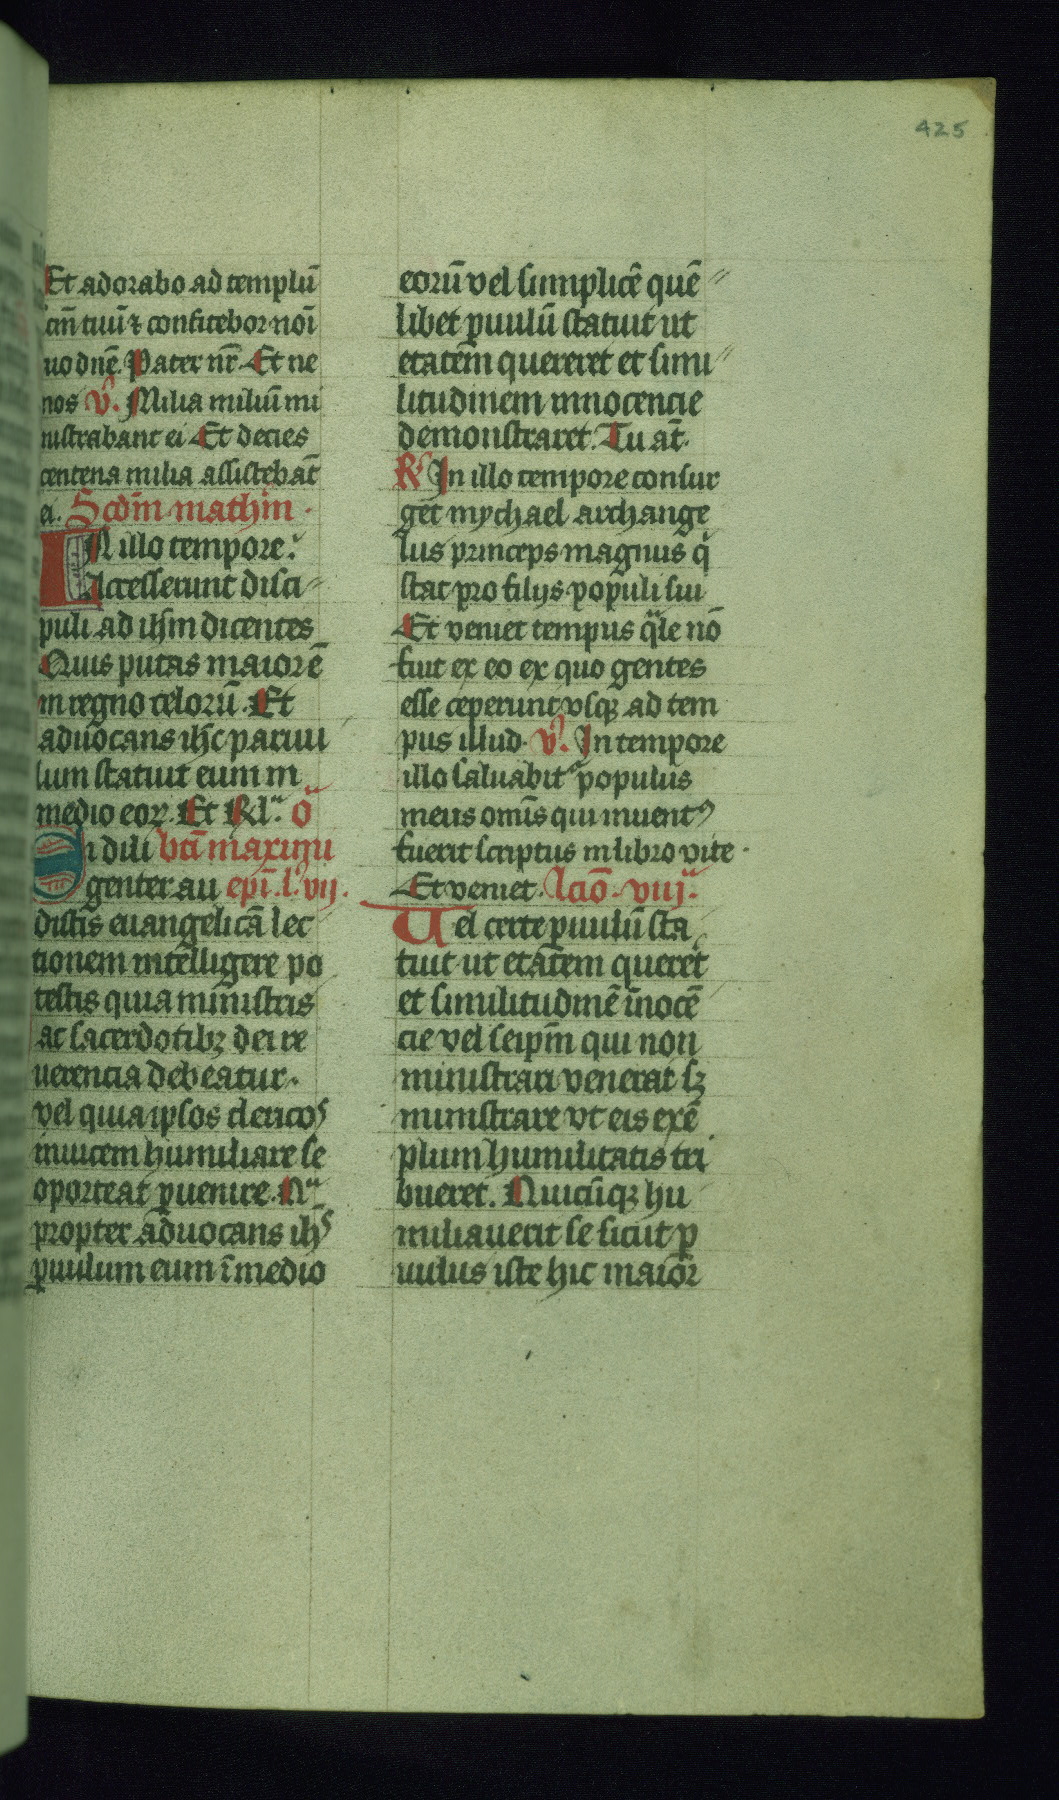 425
Et adorabo ad templū
cm̄ tuū ⁊ confitebor noī
tuo dn̄e. Pater nr̄. Et ne
nos v̓. Milia miliū mi
nistrabant ei Et decies
centena milia assistebāt
ei. Scd̄m mathm̄.
IN illo tempore.
Accesserunt disci
puli ad ihm̄ dicentes
Quis putas maior ē
in regno celorū. Et
aduocans ihc̄ paruu
lum statuit eum in
medio eoꝝ. Et Rl̓.
Si dili bt̄i maximi
genter au epī. l̓. vij.
distis euangelicā lec
tionem intelligere po
testis quia ministris
ac sacerdotibꝫ dei re
uerencia debeatur.
vel quia ipsos clericos
inuicem humiliare se
oporteat ꝑuenire.
propter aduocans ihs̄
ꝑuulum eum ī medio
eorū vel simplicē quē
libet ꝑuulū statuit ut
etatem quereret et simi
litudinem innocencie
demonstraret. Tu āt.
R̓ In illo tempore consur
get mychael archange
lus princeps magnus q̄
stat pro filijs populi sui
Et veniet tempus qͣle nō
fuit ex eo ex quo gentes
esse ceperunt vsqꝫ ad tem
pus illud. v̓. In tempore
illo saluabitᷣ populus
meus omīs qui inuentꝰ
fuerit scriptus in libro vite.
Et veniet. lcīo. viij.
Uel certe ꝑuulū sta
tuit ut etatem querēt
et similitudinē īnocē
cie vel seipm̄ qui non
ministrari venerat sꝫ
ministrare vt eis exē
plum humilitatis tri
bueret. Quicūqꝫ hu
miliauerit se sicut ꝑ
uulus iste hic maior